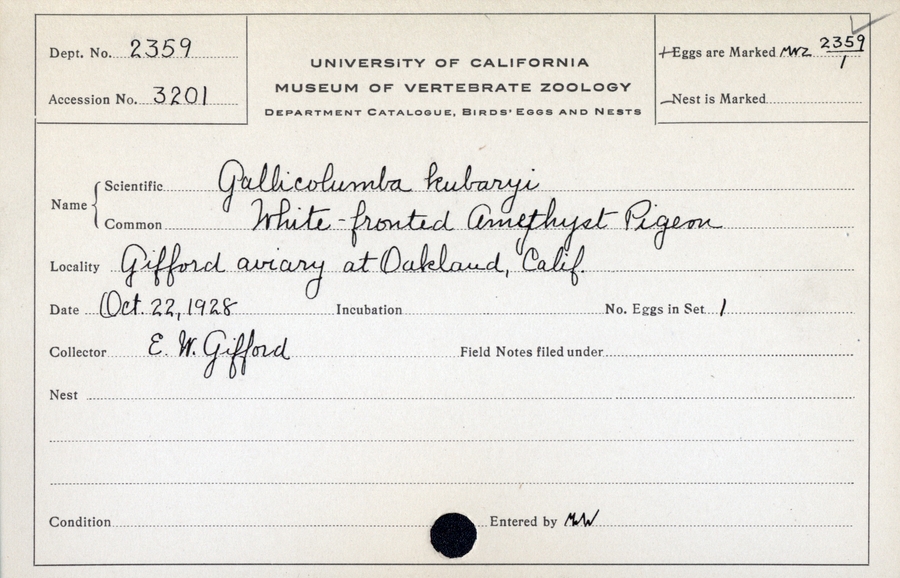 Dept. No. 2359
Accession No. 3201
UNIVERSITY OF CALIFORNIA
MUSEUM OF VERTEBRATE ZOOLOGY
DEPARTMENT CATALOGUE, BIRDS' EGGS AND NESTS
+Eggs are Marked MVZ 2359/1
–Nest is Marked
Name { Scientific Gallicolumba kubaryi
Common White-fronted Amethyst Pigeon
Locality Gifford aviary at Oakland, Calif.
Date Oct. 22, 1928 Incubation No. Eggs in Set 1
Collector E. W. Gifford Field Notes filed under
Nest
Condition Entered by